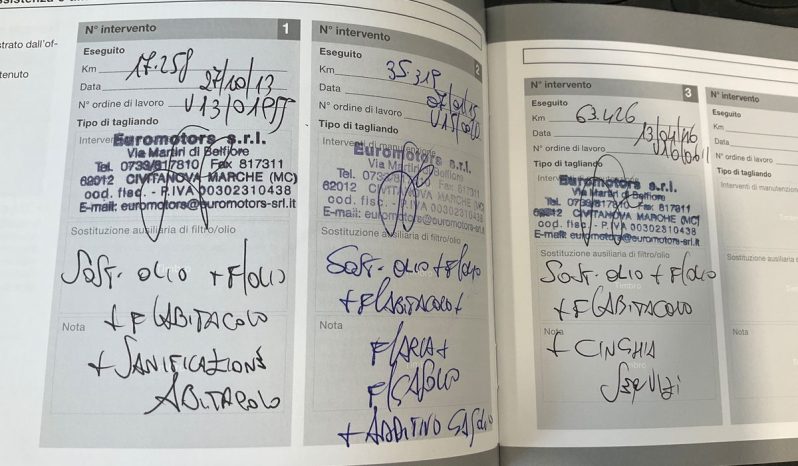 strato dall'of-
tenuto
N° intervento 1
Eseguito
Km 17.258
Data 27/10/13
N° ordine di lavoro
Tipo di tagliando
Euromotors s.r.l.
Via Martiri di Belfiore
Tel. 0733/817810 / Fax 817311
62012 CIVITANOVA MARCHE (MC)
cod. fisc. - P.IVA 00302310438
E-mail: euromotors@euromotors-srl.it
Sostituzione ausiliaria di filtro/olio
SOST. OLIO + F/OLIO
+ F/ABITACOLO
Nota
+ SANIFICAZIONE
ABITACOLO
N° intervento 2
Eseguito
Km 35.319
Data 07/01/15
N° ordine di lavoro
Tipo di tagliando
Interventi di manutenzione
Euromotors s.r.l.
Via Martiri di Belfiore
Tel. 0733/817810 Fax 817311
62012 CIVITANOVA MARCHE (MC)
cod. fisc. - P.IVA 00302310438
E-mail: euromotors@euromotors-srl.it
Sostituzione ausiliaria di filtro/olio
SOST. OLIO + F/OLIO
+ F/ABITACOLO +
Nota
F/ARIA +
F/GASOLIO
+ ADDITIVO GASOLIO
N° intervento 3
Eseguito
Km 63.426
Data 13/04/16
N° ordine di lavoro
Tipo di tagliando
Euromotors s.r.l.
Via Martiri di Belfiore
Tel. 0733/817810 Fax 817311
62012 CIVITANOVA MARCHE (MC)
cod. fisc. - P.IVA 00302310438
E-mail: euromotors@euromotors-srl.it
Sostituzione ausiliaria di filtro/olio
SOST. OLIO + F/OLIO
Timbro
+ F/ABITACOLO
Nota
+ CINGHIA
SERVIZI
N° intervento
Eseguito
Km
Data
N° ordine di lavoro
Tipo di tagliando
Interventi di manutenzion
Sostituzione ausiliaria
Nota